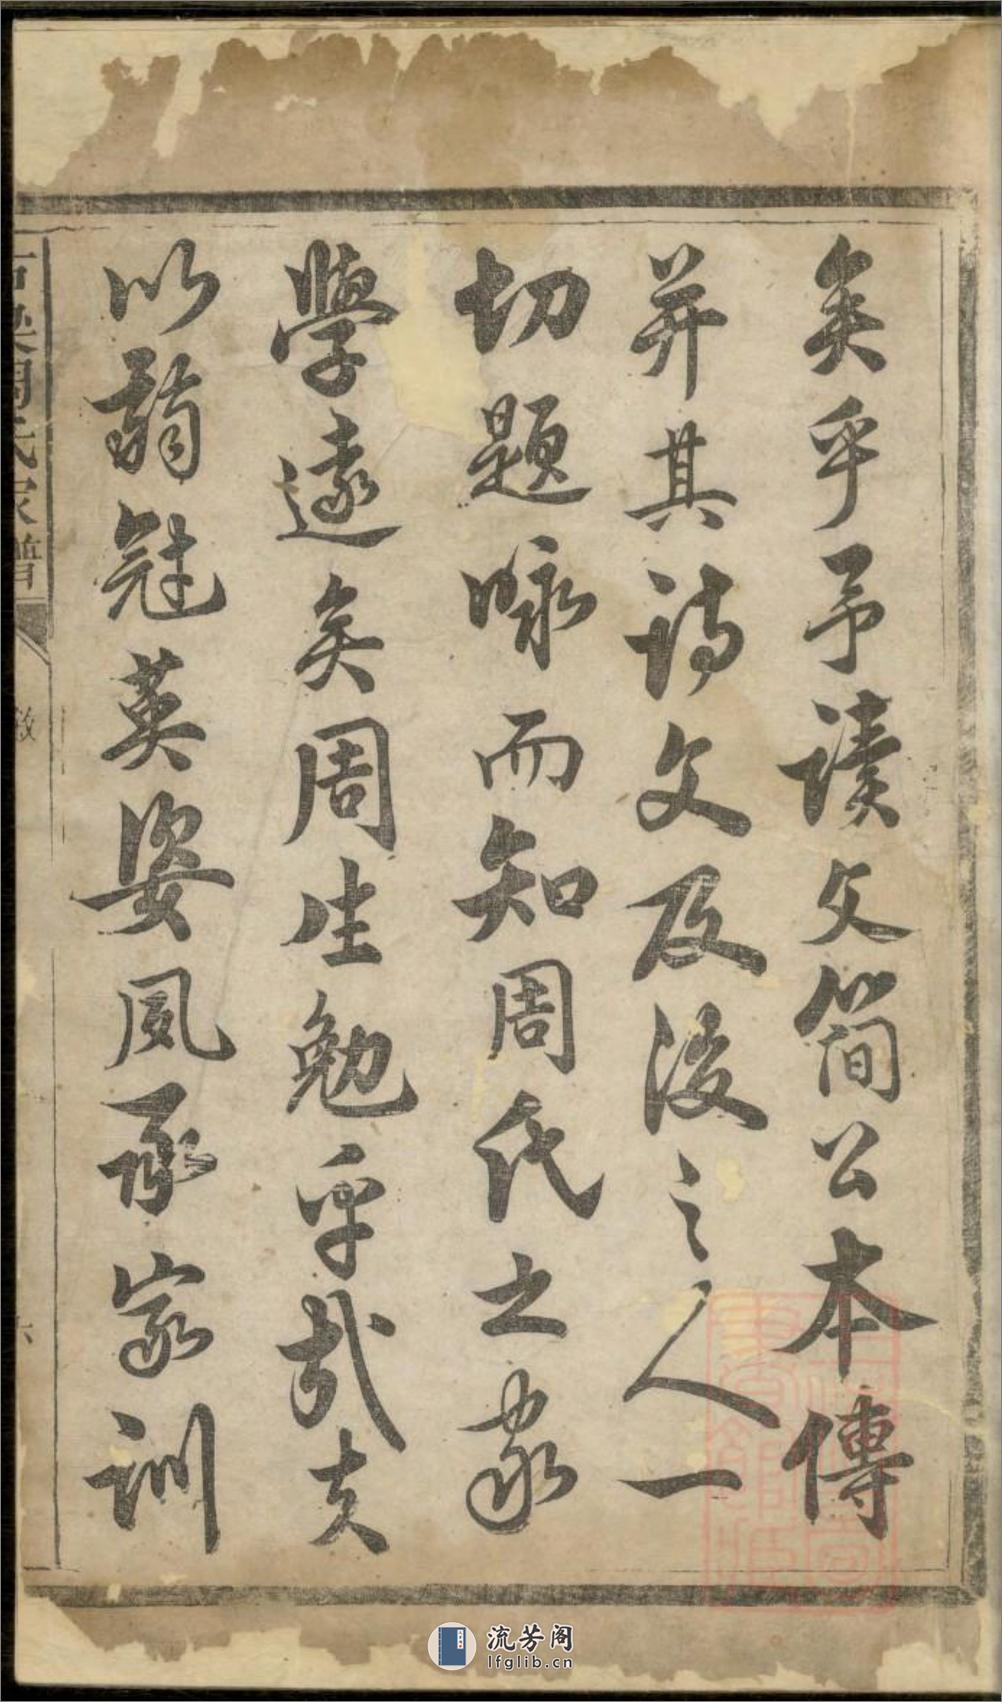 矣乎予讀文簡公本傳
并其詩文及後之人一
切題咏而知周氏之家
學遠矣周生勉乎哉夫
以弱冠英姿夙承家訓
周氏家譜
敘
六
流芳阁
lfglib.cn